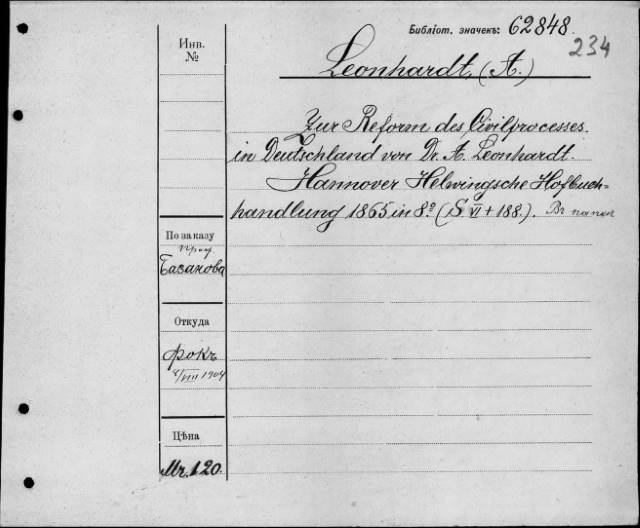 Библіот. значекъ: 62848.
234
Инв.
№
Leonhardt, (A.)
Zur Reform des Civilprocesses
in Deutschland von Dr. A. Leonhardt.
Hannover Helwingsche Hofbuch-
handlung 1865 in 8º (S. VI + 188.). Въ папкѣ
По заказу
проф.
Базанова
Откуда
Рокъ
/VIII 1904
Цѣна
Mr. 1.20.